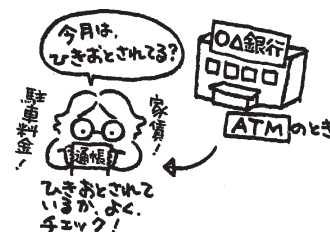 今月は、
ひきおとされてる?
○△銀行
ATMのとき
家賃!
駐車料金!
通帳
ひきおとされて
いるか、よく、
チェック!